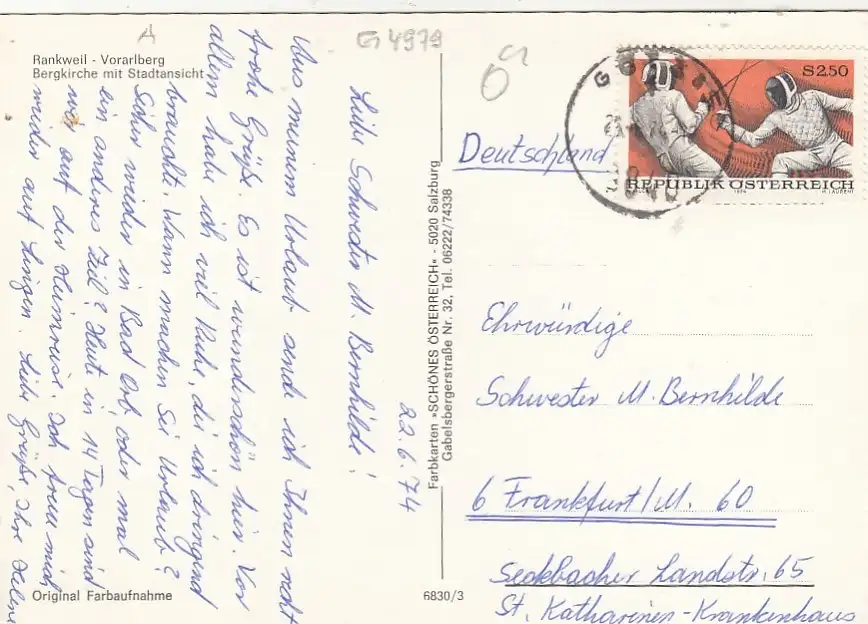 Rankweil - Vorarlberg
Bergkirche mit Stadtansicht
G 4979
22.6.74
Liebe Schwester M. Bernhilde!
Aus meinem Urlaub sende ich Ihnen recht
frohe Grüße. Es ist wunderschön hier. Vor
allem habe ich viel Ruhe, die ich dringend
brauchte. Wann machen Sie Urlaub?
Sicher wieder in Bad Orb oder mal
ein anderes Ziel? Heute in 14 Tagen sind
wir auf der Heimreise. Ich freue mich
wieder auf Lingen. Liebe Grüße, Ihre Helene
Original Farbaufnahme
6830/3
Farbkarten »SCHÖNES ÖSTERREICH« - 5020 Salzburg
Gabelsbergerstraße Nr. 32, Tel. 06222/74338
S2.50
REPUBLIK ÖSTERREICH
1974
Deutschland
Ehrwürdige
Schwester M. Bernhilde
6 Frankfurt/M. 60
Seckbacher Landstr. 65
St. Katharinen-Krankenhaus